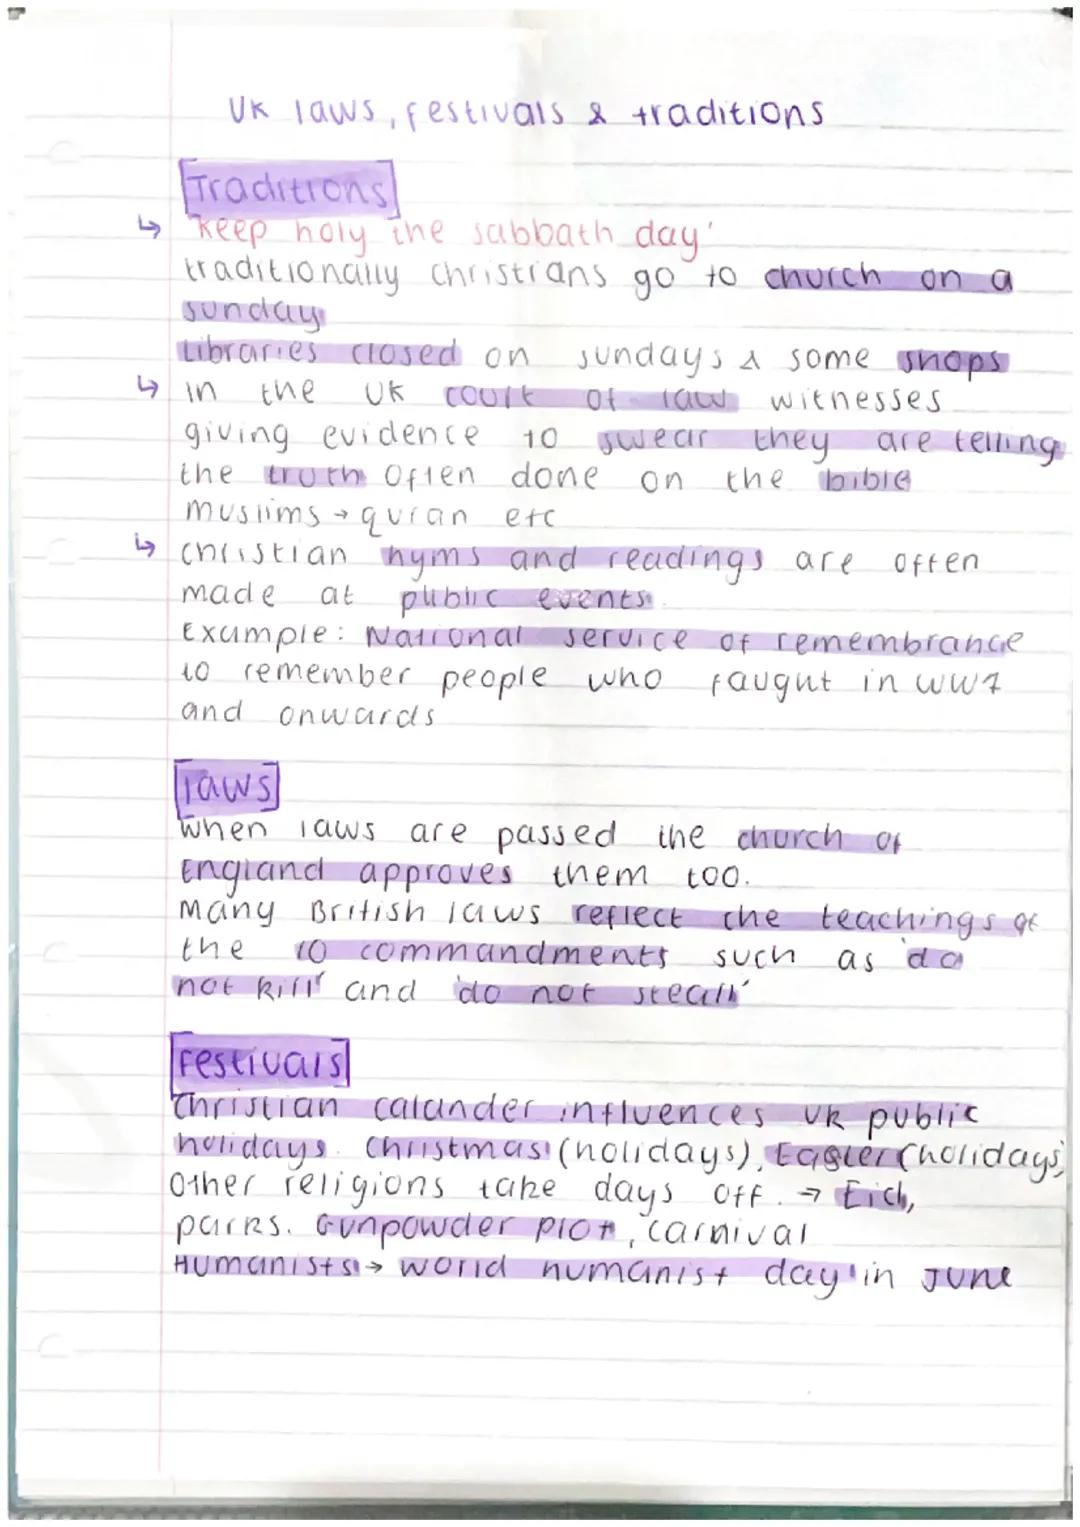 UK laws, festivals & traditions
Traditions
↳ 'keep holy the sabbath day'
traditionally christians go to church on a
sunday
Libraries closed on sundays & some shops
↳ in the UK court of law witnesses
giving evidence to swear they are telling
the truth often done on the bible
muslims → quran etc
↳ christian hyms and readings are often
made at public events.
Example: National service of remembrance
to remember people who faught in WW1
and onwards
laws
when laws are passed the church of
England approves them too.
Many British laws reflect the teachings of
the 10 commandments such as 'do
not kill' and 'do not steal'
Festivals
Christian calander influences UK public
holidays. Christmas (holidays), Easter (holidays)
Other religions take days off. → Eid,
parks. Gunpowder plot, carnival
Humanists → world humanist day in June